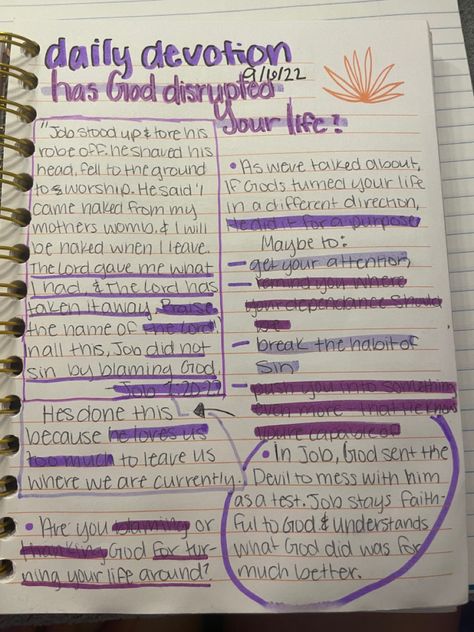 daily devotion
9/6/22
has God disrupted
your life?
"Job stood up & tore his
robe off. he shaved his
head, fell to the ground
to worship. He said 'I
came naked from my
mothers womb. & I will
be naked when I leave.
The Lord gave me what
I had, & The Lord has
taken it away. Praise
the name of the Lord!
n all this, Job did not
sin by blaming God.
- Job 1:20-22
Hes done this
because he loves us
too much to leave us
where we are currently.
• Are you blaming or
thanking God for tur-
ning your life around?
• As weve talked about,
If Gods turned your life
in a different direction,
He did it for a purpose
Maybe to:
- get your attention,
- remind you where
your dependance should
be
- break the habit of
sin
- push you into something
even more that he knows
you're capable of
• In Job, God sent the
Devil to mess with him
as a test. Job stays faith-
ful to God & understands
what God did was for
much better.